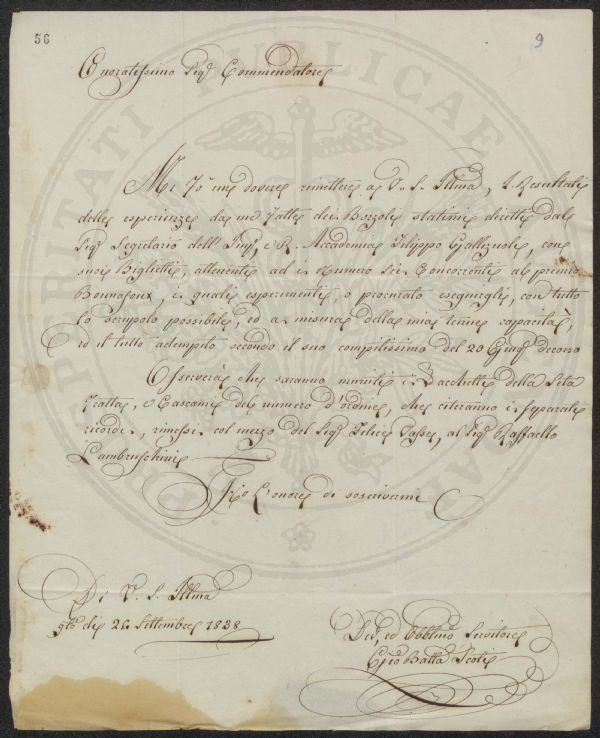 56
9
Onoratissimo Sig.r Commendatore
Mi fo un dovere rimettere a V. S. Illma, i Resultati
delle esperienze da me fatte dei Bozzoli statimi diretti dal
Sig.r Segretario dell' Imp. e R. Accademia Filippo Gallizioli, con
suoi Biglietti, attenenti ad i Numero Sei Concorrenti al premio
Bonnafoux, i quali esperimenti, o procurato eseguirgli, con tutto
lo scrupolo possibile, ed a misura della mia tenue capacità,
ed il tutto adempito secondo il suo compitissimo del 20 Giug.o decorso
Osserverà che saranno muniti i Sacchetti della Seta
tratta, e Cascami del numero d'ordine, che citeranno i separati
ricordi, rimessi col mezzo del Sig.r Felice Passe, al Sig.r Raffaello
Lambruschini
Ho L'onore di soscrivermi
Di V. S. Illma
q.to dì 24 Settembre 1838
Dev. ed Obblmo Servitore
Gio Batta Scoti
PUBLICAE